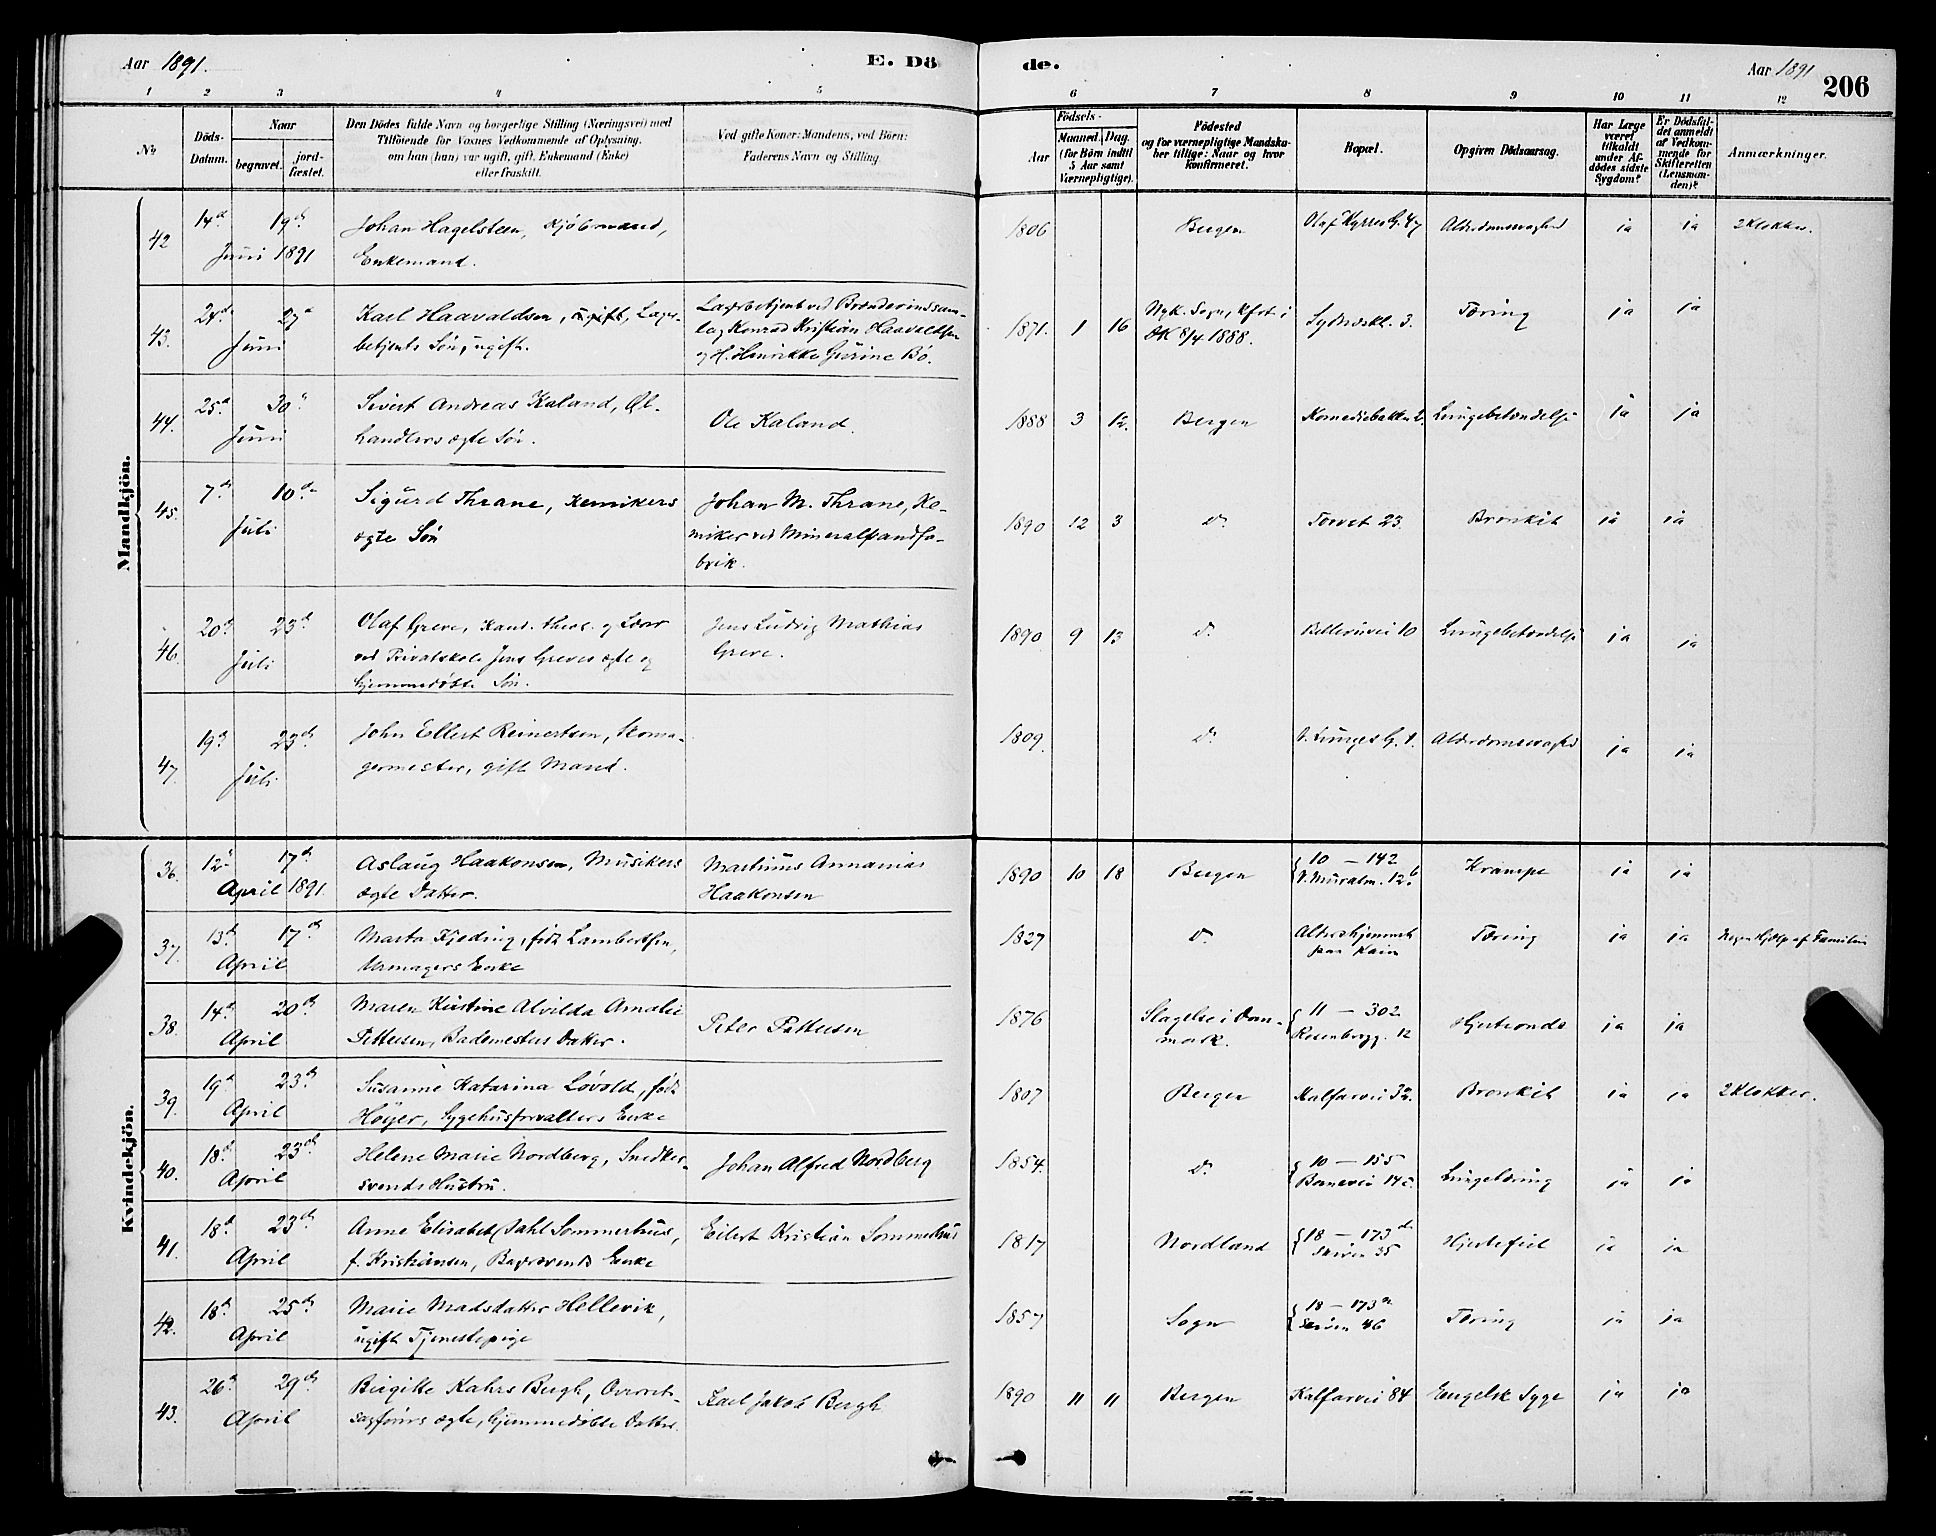 Aar 1891.
E. Dö
de.
Aar 1891
206
1 2 3 4 5
6 7 8 9 10 11 12
No
Döds-Datum.
Naar
begravet.
jord-fæstet.
Den Dödes fulde Navn og borgerlige Stilling (Næringsvei) med
Tilföiende for Voxnes Vedkommende af Oplysning,
om han (hun) var ugift, gift, Enkemand (Enke)
eller fraskilt.
Ved gifte Koner: Mandens, ved Börn:
Faderens Navn og Stilling.
Födsels-
Aar
Maaned.
Dag.
(for Börn indtil
5 Aar samt
Værnepligtige).
Födested
og for værnepligtige Mandska-
ber tillige: Naar og hvor
konfirmeret.
Bopæl.
Opgiven Dödsaarsag.
Har Læge
været
tilkaldt
under Af-
dödes sidste
Sygdom?
Er Dödsfal-
det anmeldt
af Vedkom-
mende for
Skifteretten
(Lensman-
den)?
Anmærkninger.
Mandkjön.
42 14d 19d Johan Hagelsteen, Kjöbmand, 1806 Bergen Olaf Kyrres G. 47 Alderdomssvaghed ja ja 2 Klokker.
Juni 1891 Enkemand.
43. 24d 27d Karl Haavaldsen, ugift, Lager-
Juni betjents Søn, ugift.
Lagerbetjent ved Brændevinssam-
lag Konrad Kristian Haavaldsen
og H. Henrikke Gurine Bö.
1871. 1 16 Nyk. Sogn, Kfst. i
DK 8/4 1888.
Sydneskl. 3. Tæring ja ja
44. 25d 30d Sivert Andreas Kaland, Øl-
Juni handlers ægte Søn.
Ole Kaland.
1888 3 12. Bergen Komediebakken 2. Lungebetændelse ja ja
45. 7d 10d Sigurd Thrane, Kemikers
Juli ægte Søn
Johan M. Thrane, Ke-
miker ved Mineralvandfa-
brik.
1890 12 3 do Torvet 23. Bronkit ja ja
46. 20d 23d Olaf Greve, Kand. theol. og Lærer
Juli ved Privatskole Jens Greves ægte og
hjemmedøbte Søn.
Jens Ludvig Mathias
Greve.
1890 9 13 do Bellevuevei 10 Lungebetændelse ja ja
47. 19d 23d John Ellert Reinertsen, Skoma-
Juli germester, gift Mand.
1809. do V. Lunges G. 1. Alderdomssvaghed ja ja
Kvindekjön.
36. 12d 17d Aslaug Haakonsen, Musikers
April 1891. ægte Datter.
Martinus Annanias
Haakonsen
1890 10 18 Bergen 10 — 142
V. Muralm. 12b
Krampe ja ja
37. 13d 17d Marta Kjeding, född Lambertsen,
April Urmagers Enke
1827 do Altershjemmet
Tæring ja ja Nogen Hjælp af Familien
38. 14d 20d Maren Kristine Alvilda Amalie
April Pettersen, Bademesters Datter.
Peter Pettersen
1876 Slagelse i Dan-
mark.
11 — 302
Rosenbergg. 12
Hjerteonde ja ja
39. 19d 23d Susanne Katarina Lövold, född
April Höyer, Sygehusforvalters Enke
1807 Bergen Kalfarvei 32. Bronkit ja ja 2 Klokker.
40. 18d 23d Helene Marie Nordberg, Snedker-
April svends Hustru.
Johan Alfred Nordberg
1854. do 10 — 155
14c.
Lungetæring ja ja
41. 18d 23d Anne Elisabet Dahl Sommerhus,
April f. Kristiansen, Enke
Eilert Kristian Sommerhus
1817 Nordland 18 — 173d
Skiven 35
Hjertefeil ja ja
42. 18d 25d Marie Madsdatter Hellevik,
April ugift Tjenestepige
1857 Sogn 18 — 173a
Skiven 46
Tæring ja ja
43. 26d 29d Birgitte Kahrs Bergh, Overret-
April sagförers ægte, hjemmedöbte Datter.
Karl Jakob Bergh
1890 11 11 Bergen Kalfarvei 84 Engelsk Syge ja ja